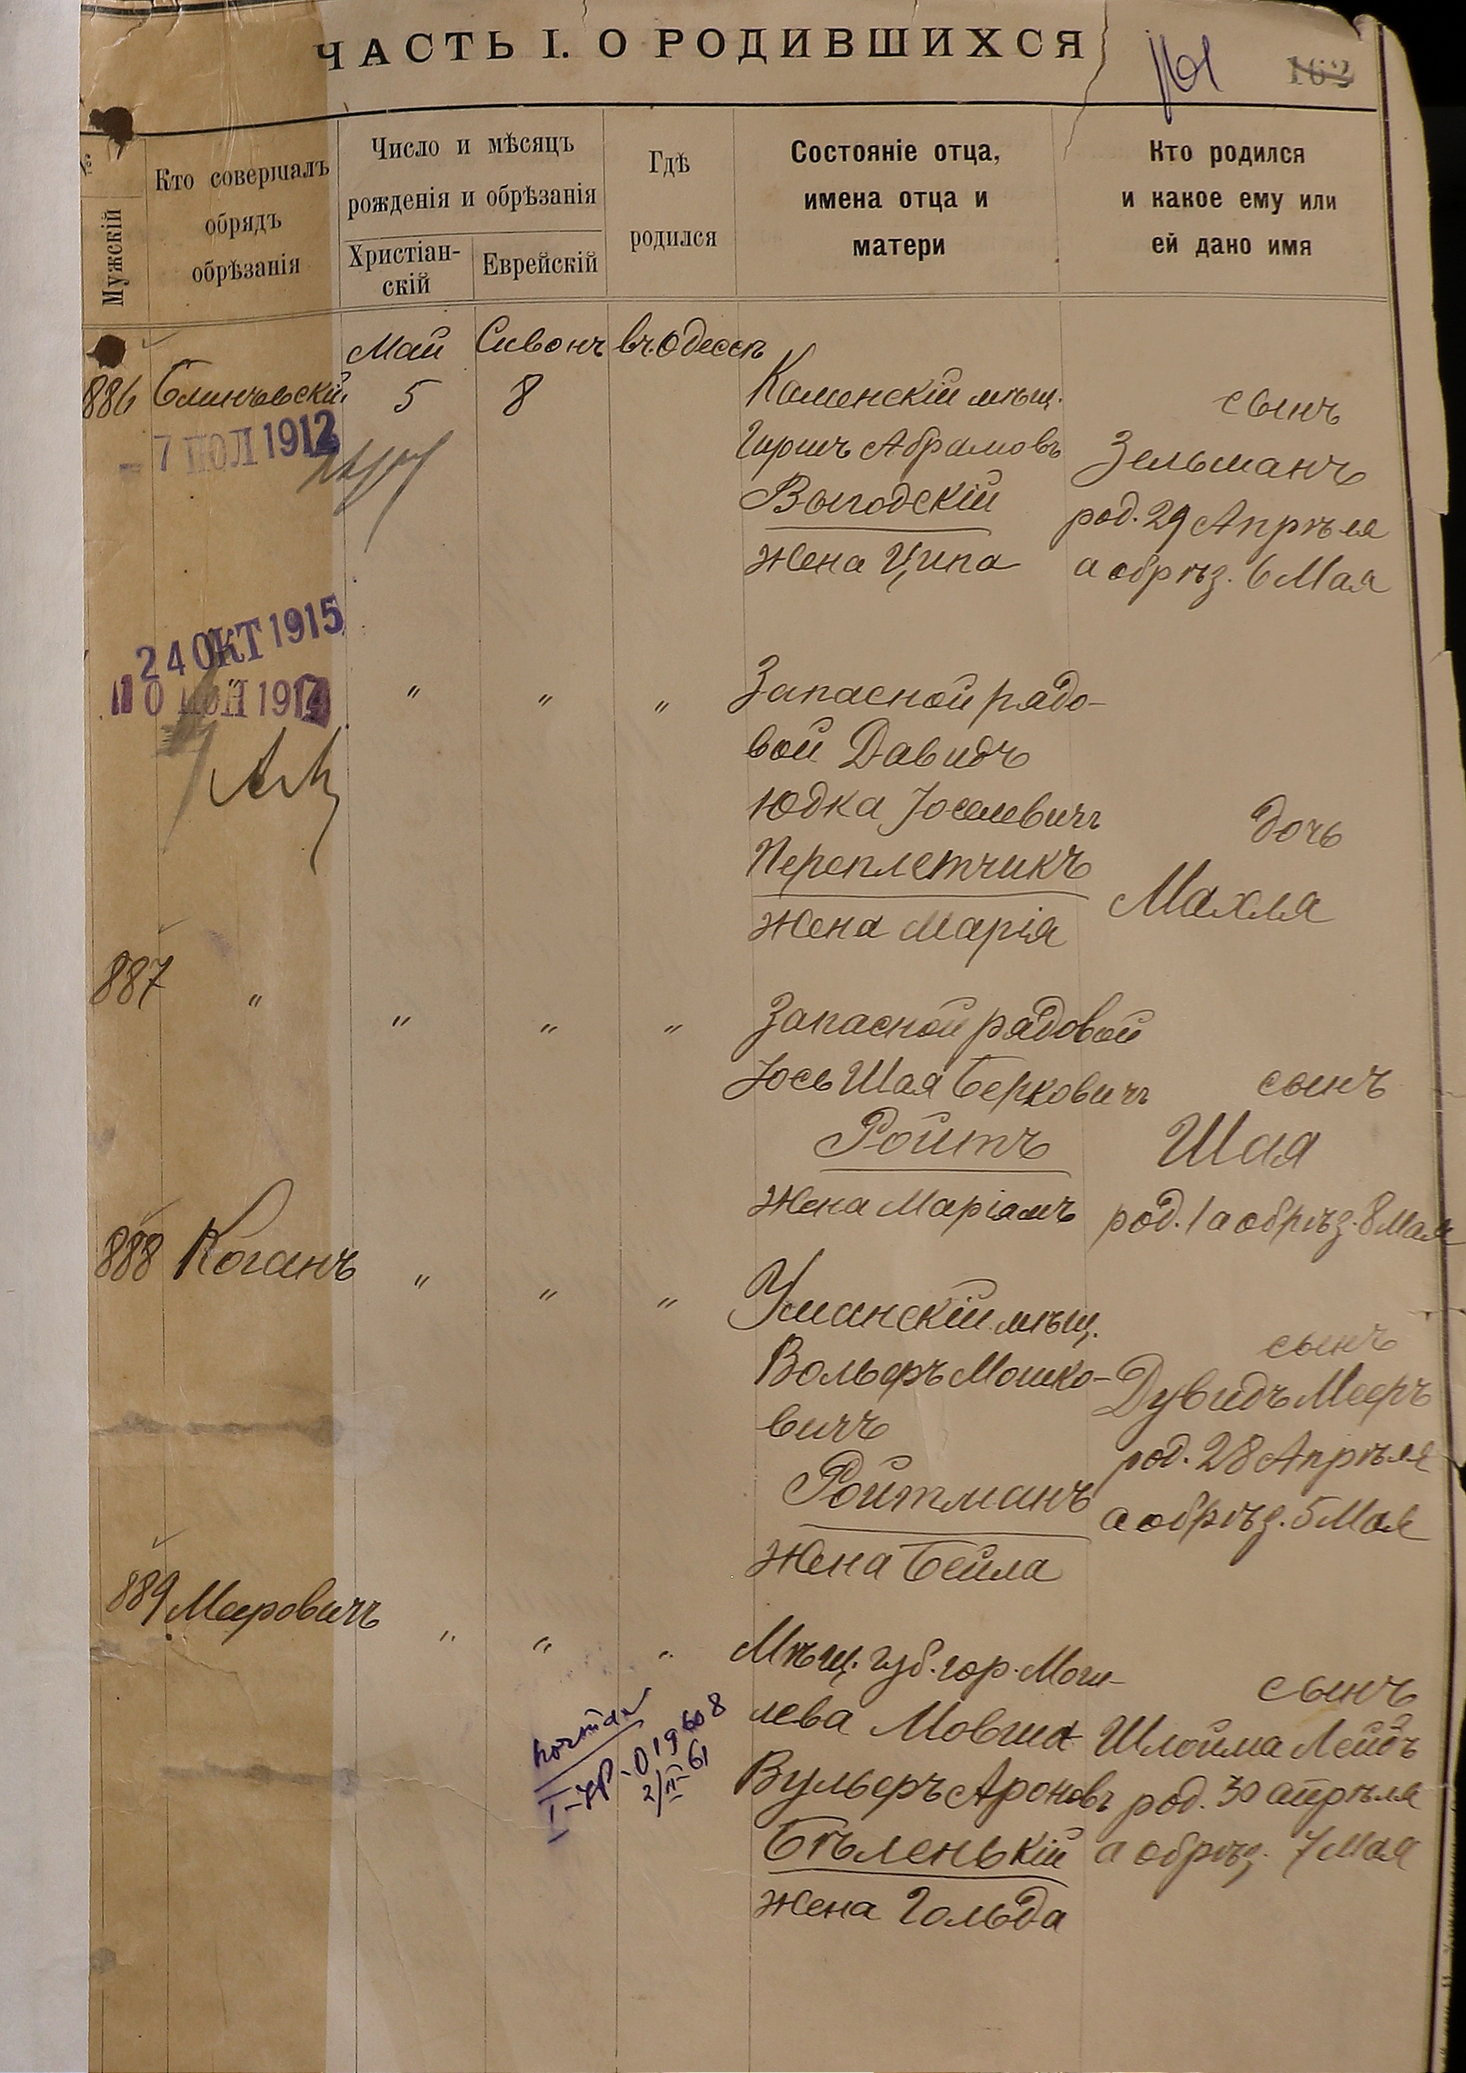 ЧАСТЬ I. О РОДИВШИХСЯ
162
№
Мужскій
Кто совершалъ
обрядъ
обрѣзанія
Число и мѣсяцъ
рожденія и обрѣзанія
Христіан-
скій
Еврейскій
Гдѣ
родился
Состояніе отца,
имена отца и
матери
Кто родился
и какое ему или
ей дано имя
Май Сивонъ въ Одессѣ
886 5 8
Каменскій мѣщ.
Гиршъ Абрамовъ
Выгодскій
жена Ципа
сынъ
Зельманъ
род. 29 Апрѣля
а обрѣз. 6 Мая
- 7 ИЮЛ 1912
24 ОКТ 1915
" " "
Запасной рядо-
вой Давидъ
Юдка Іоселевичъ
Переплетчикъ
жена Марія
дочь
Махля
887 " " " "
Запасной рядовой
Іось Шая Берковичъ
Ройтъ
жена Маріамъ
сынъ
Шая
род. 1 а обрѣз. 8 Мая
888 Коганъ " " "
Уманскій мѣщ.
Вольфъ Мошко-
вичъ
Ройтманъ
жена Бейла
сынъ
Дувидъ Мееръ
род. 28 Апрѣля
а обрѣз. 5 Мая
889 Меровичъ " " "
Мѣщ. губ. гор. Моги-
лева Мовша
Вульфъ Ароновъ
Бѣленькій
жена Гольда
сынъ
Шлойма Лейбъ
род. 30 апрѣля
а обрѣз. 7 Мая